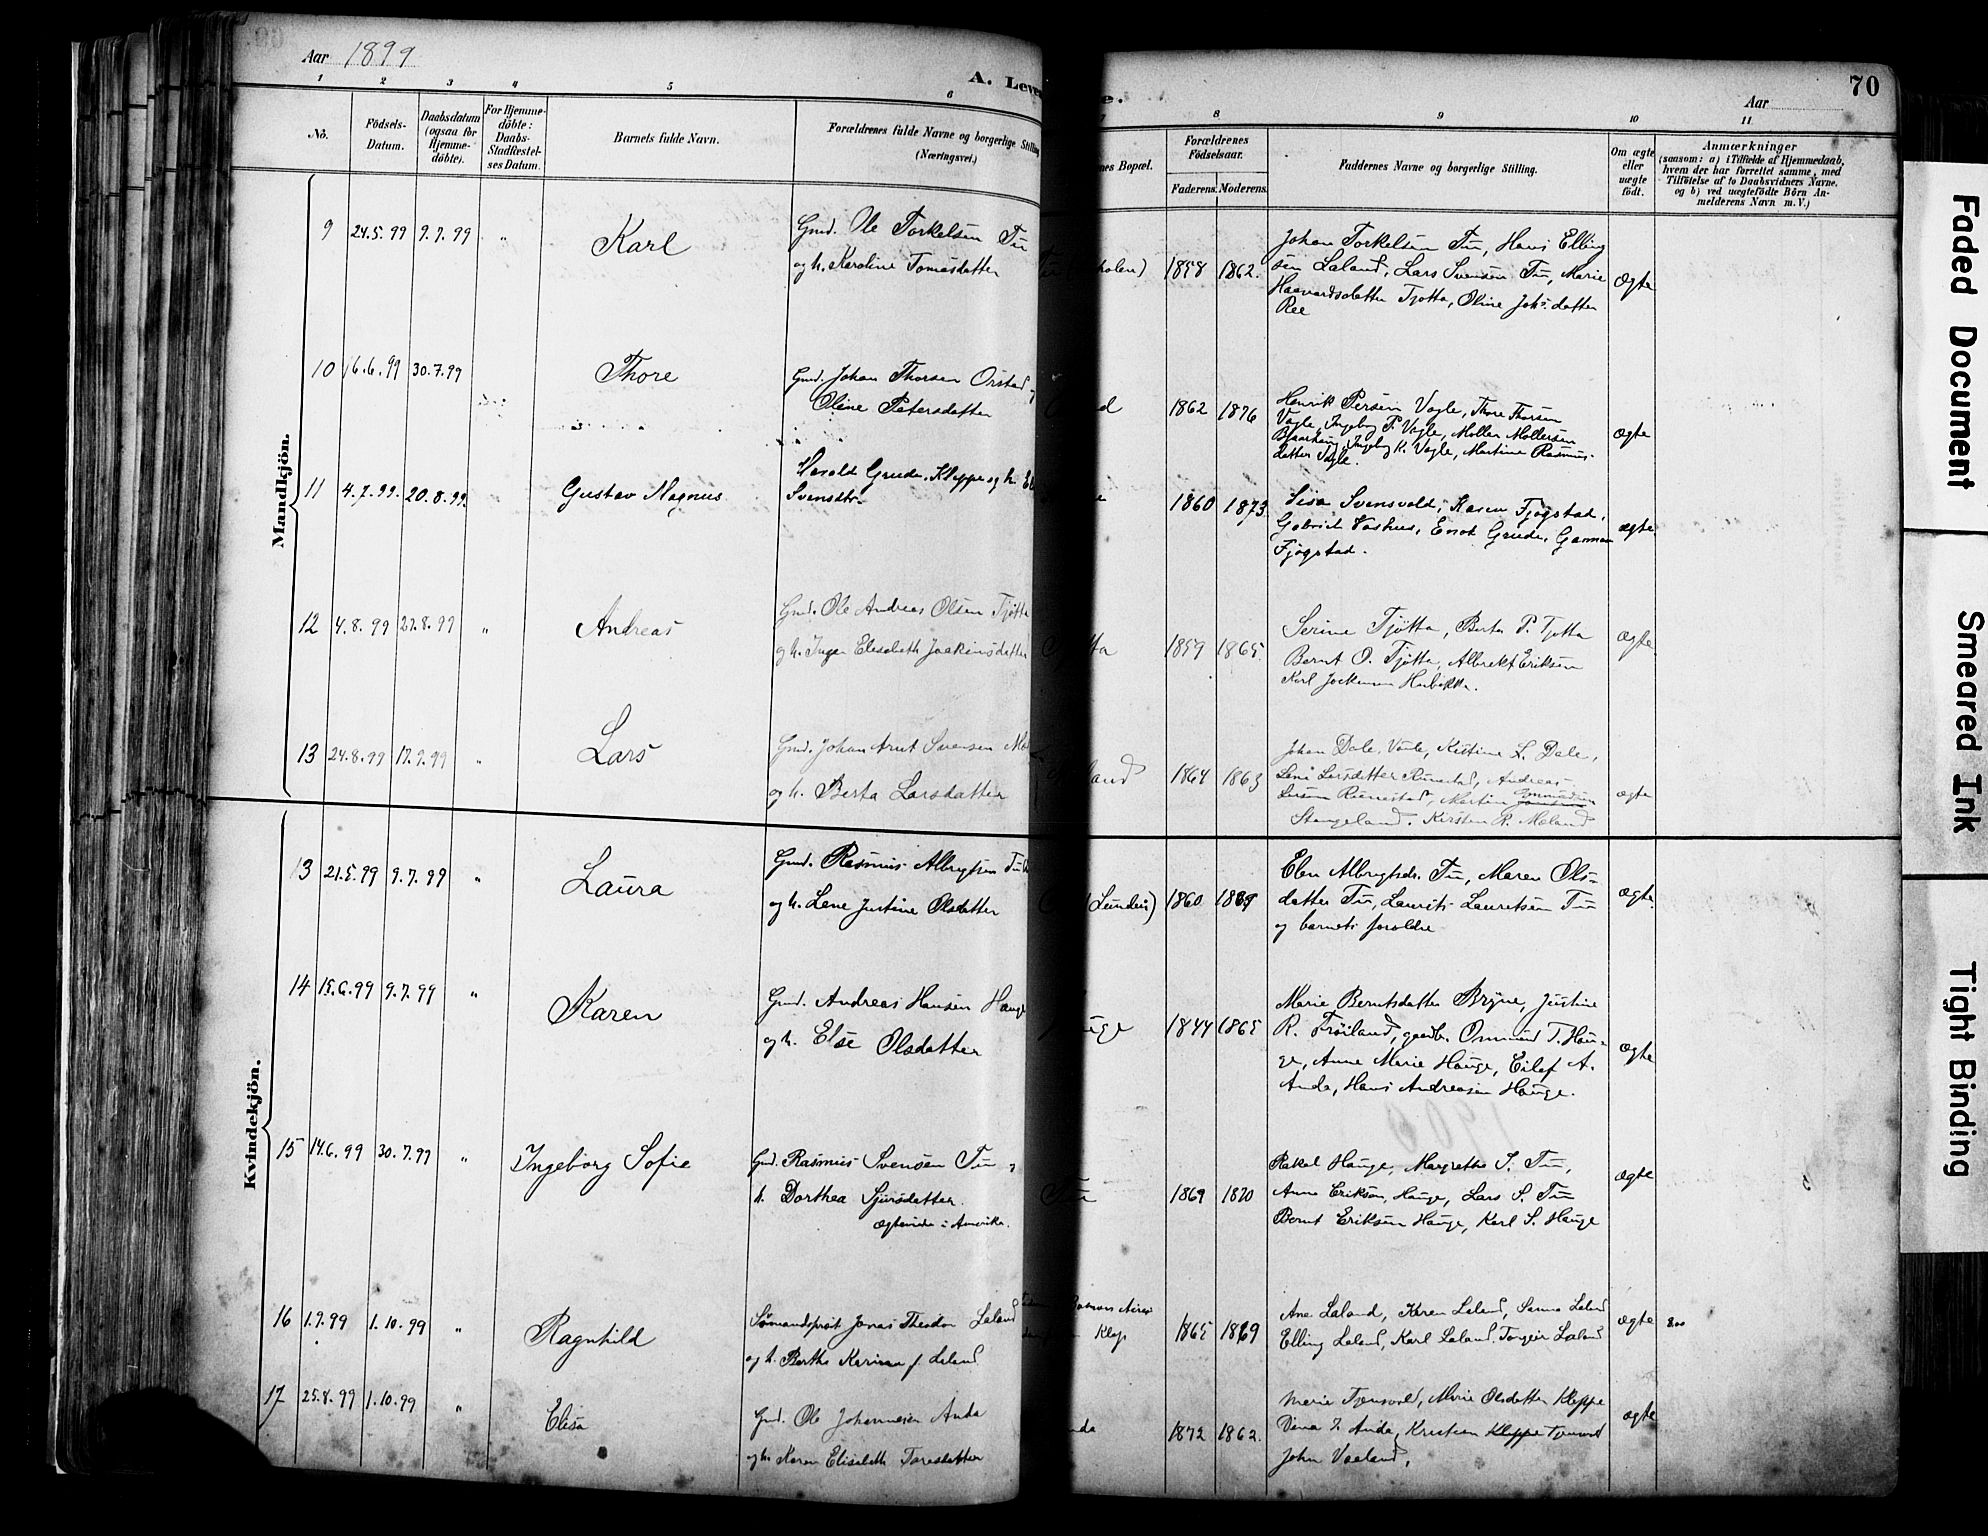 Aar 1899
A. Leve
e.
Aar
70
1 2 3 4 5 6 7 8 9 10 11
No.
Födsels-Datum.
Daabsdatum (ogsaa for Hjemme-döbte).
For Hjemme-döbte: Daabs-Stadfæstel-ses Datum.
Barnets fulde Navn.
Forældrenes fulde Navne og borgerlige Stilling (Næringsvei.)
nes Bopæl.
Forældrenes Födselsaar.
Faderens. Moderens.
Faddernes Navne og borgerlige Stilling.
Om ægte eller uægte födt.
Anmærkninger
(saasom: a) i Tilfælde af Hjemmedaab,
hvem der har forrettet samme, med
Tilföielse af to Daabsvidners Navne,
og b) ved uægtefödte Börn An-
melderens Navn m. V.)
Mandkjön.
9 24.5.99 9.7.99 " Karl
Gmd. Ole Torkelsen Tu
og h. Karoline Tomasdatter
holen) 1858 1862.
Johan Torkelsen Tu, Hans Elling
sen Laland, Lars Svensen Tu, Marie
Haavardsdatter Tjøtta, Oline Johs. datter
Ree
ægte
10 16.6.99 30.7.99 Thore
Gmd. Johan Thorsen Orstad
Oline Petersdatter
d 1862 1876
Henrik Persen Vagle, Thore Thorsen
Vagle, Ingeborg P. Vagle, Møller Møllersen
Ingeborg K. Vagle, Martine Rasmus-
datter Vagle.
ægte
11 4.7.99. 20.8.99. " Gustav Magnus
Harald Grude, Kleppe og h.
Svensdtr.
1860 1873.
Lisa Svensvold, Karen Fjøgstad,
Gabriel Vashus, Enok Grude,
Fjøgstad.
ægte.
12 4.8.99 27.8.99 " Andreas
Gmd. Ole Andreas Olsen Tjøtta
og h. Inger Elisabeth Joakimsdatter
tta 1859 1865.
Serine Tjøtta, Berta P. Tjøtta
Bernt O. Tjøtta, Albrekt Eriksen
Karl
ægte.
13 24.8.99 17.9.99 " Lars
Gmd. Johan Arnt Svensen
og h. Berta Larsdatter
land 1864 1863
Johan Dale, Kistine L. Dale,
Lene Larsdatter Andreas
Larsen Martin
Stangeland. Kirsten R. Møland
ægte
Kvindekjön.
13 21.5.99 9.7.99 " Laura
Gmd. Rasmus Albrigtsen Tu
og h. Lene Justine Olsdatter
(Lunden) 1860
Elen Albrigtsdr. Tu, Maren Ols-
datter Tu, Laurits Lauritsen Tu
og barnets foreldre
ægte.
14 15.6.99 9.7.99 " Karen
Gmd. Andreas Hansen Hauge
og h. Else Olsdatter
uge 1844 1865
Marie Berntsdatter Bryne, Justine
R. Frøiland, gaardbr. Ommund T. Hau-
ge, Anne Marie Hauge, Eilef A.
Anda, Hans Andreasen Hauge.
ægte
15 14.6.99 30.7.99 " Ingeborg Sofie
Gmd. Rasmus Svensen Tu
h. Dorthea Sjursdatter.
ægteviede i Amerika.
Tu 1869 1870
Rakel Hauge, Margrethe S. Tu,
Anne Eriksen, Hauge, Lars S. Tu
Bernt Eriksen Hauge, Karl S. Hauge
ægte
16 1.9.99 1.10.99 " Ragnhild
Sømandsprest Jonas Theodor Laland
og h. Berthe Karine f. Laland.
Klep 1865 1869
Ane Laland, Karen Laland, Sanna Laland
Elling Laland, Karl Laland, Torgeir Laland
ægte
17 25.8.99 1.10.99 " Elisa
Gmd. Ole Johannesen Anda
og h. Karen Elisabeth Toresdatter
nda 1872 1862.
Marie Tjensvold, Marie Olsdatter Kleppe
Anda, Kristian Kleppe Tjensvold
John Vaaland.
ægte
Faded Document
Smeared Ink
Tight Binding